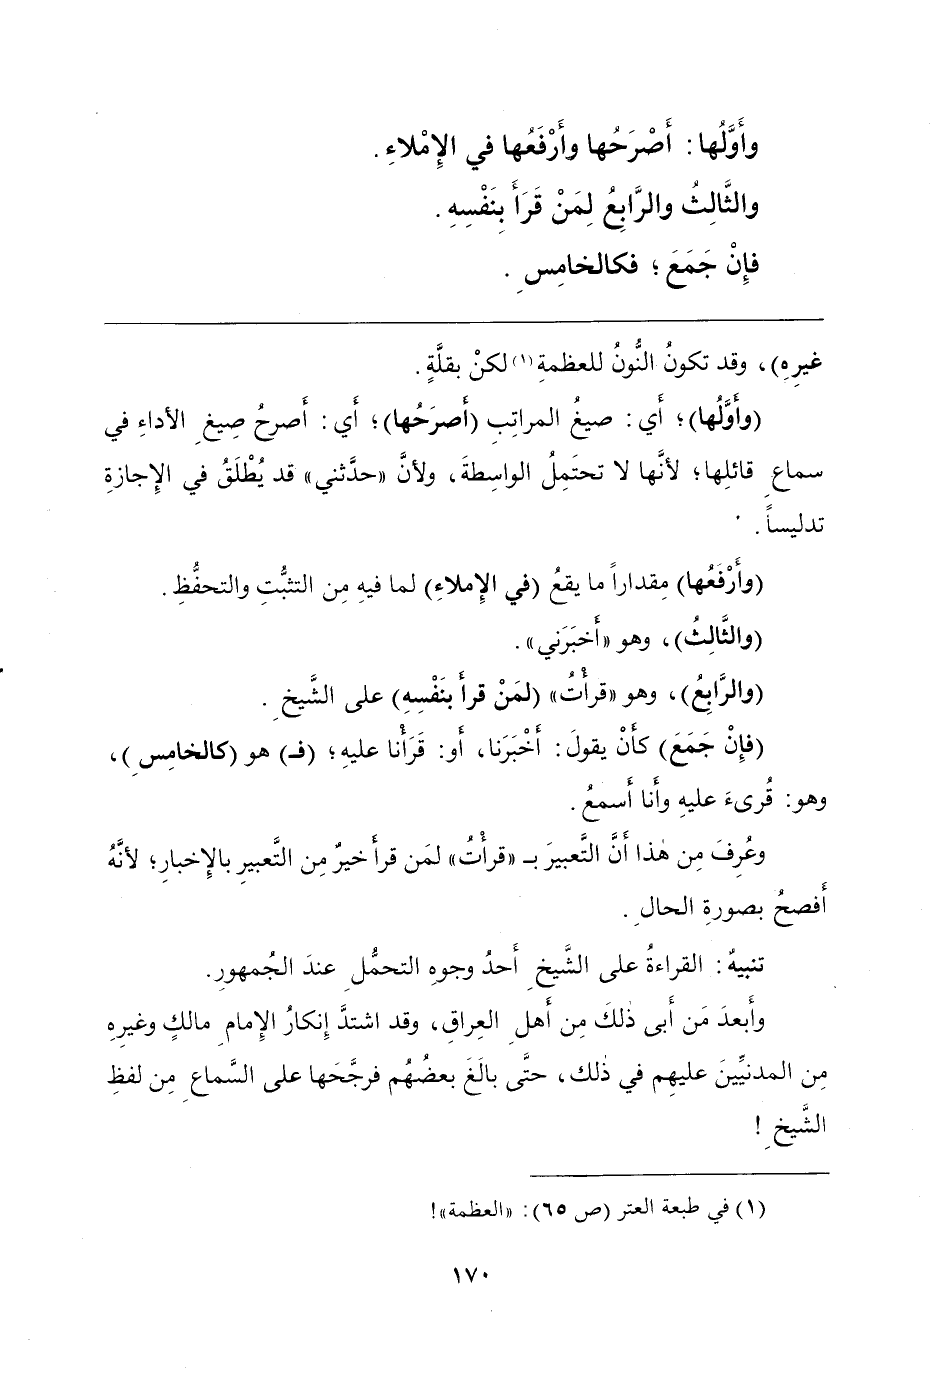 وأَوَّلُها: أَصْرَحُها وأَرْفَعُها في الإِمْلاءِ.
والثَّالِثُ والرَّابِعُ لِمَنْ قَرَأَ بِنَفْسِهِ.
فإِنْ جَمَعَ؛ فكالخامِسِ.
غيرِهِ)، وقد تكونُ النُّونُ للعظمةِ(١) لكنْ بقلَّةٍ.
(وأَوَّلُها)؛ أَي: صيغُ المراتِبِ (أَصرَحُها)؛ أَي: أَصرحُ صِيغِ الأداءِ في
سماعِ قائلِها؛ لأنَّها لا تحتَمِلُ الواسِطةَ، ولأنَّ «حدَّثني» قد يُطْلَقُ في الإِجازةِ
تدليساً.
(وأَرْفَعُها) مِقداراً ما يقعُ (في الإِملاءِ) لما فيهِ مِن التثبُّتِ والتحفُّظِ.
(والثَّالِثُ)، وهو «أَخبَرَني».
(والرَّابِعُ)، وهو «قرأْتُ» (لمَنْ قرأَ بنَفْسِهِ) على الشَّيخِ.
(فإِنْ جَمَعَ) كأَنْ يقولَ: أَخْبَرَنا، أَو: قَرَأْنا عليهِ؛ (فـ) هو (كالخامِسِ)،
وهو: قُرىءَ عليهِ وأَنا أَسمعُ.
وعُرِفَ مِن هٰذا أَنَّ التَّعبيرَ بـ «قرأْتُ» لمَن قرأَ خيرٌ مِن التَّعبيرِ بالإِخبارِ؛ لأنَّهُ
أَفصحُ بصورةِ الحالِ.
تنبيهٌ: القراءةُ على الشَّيخِ أَحدُ وجوهِ التحمُّلِ عندَ الجُمهورِ.
وأَبعدَ مَن أَبى ذٰلكَ مِن أَهلِ العِراقِ، وقد اشتدَّ إِنكارُ الإِمامِ مالكٍ وغيرِهِ
مِن المدنيِّينَ عليهِم في ذٰلك، حتَّى بالَغَ بعضُهُم فرجَّحَها على السَّماعِ مِن لفظِ
الشَّيخِ!
(١) في طبعة العتر (ص ٦٥): «العظمة»!
١٧٠